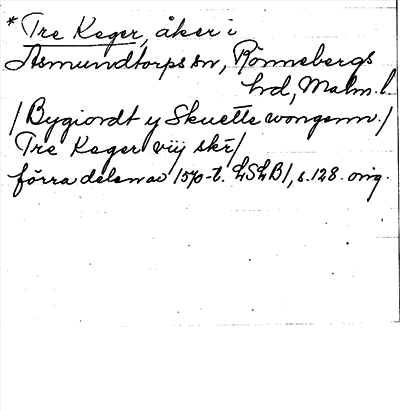 * Tre Keger, åker i
Asmundtorps sn, Rönnebergs
hd, Malm. l.
/Bygiordt y Skuette wongenn./
Tre Keger viij skr/
förra delen av 1570-t. LSLB/, s. 128. orig.